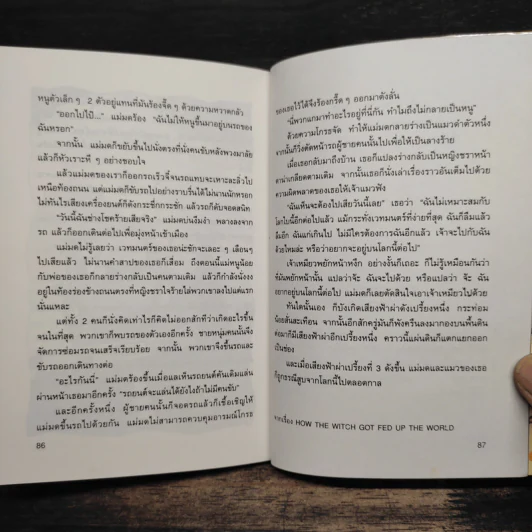 หนูตัวเล็ก ๆ 2 ตัวอยู่แทนที่มันร้องจี๊ด ๆ ด้วยความหวาดกลัว
"ออกไปไป๊..." แม่มดร้อง "ฉันไม่ให้หนูขึ้นมาอยู่บนรถของ
ฉันหรอก"
จากนั้น แม่มดก็ขยับขึ้นไปนั่งตรงที่นั่งคนขับหลังพวงมาลัย
แล้วก็หัวเราะหึ ๆ อย่างชอบใจ
แต่แม่มดก็ขับรถไปอย่างราบรื่นได้ไม่นานนักหรอก
ไม่ทันไรเสียงเครื่องยนต์ก็ดังกระชึกกระชัก แล้วรถก็ดับจอดสนิท
"วันนี้ฉันช่างโชคร้ายเสียจริง" แม่มดบ่นงึมงำ พลางลงจาก
รถ แล้วก็ออกเดินต่อไปเพื่อมุ่งหน้าเข้าเมือง
แม่มดไม่รู้เลยว่า เวทมนตร์ของเธอน่ะชักจะเลอะ ๆ เลือน ๆ
ไปเสียแล้ว ไม่นานคำสาปของเธอก็เสื่อม ถึงตอนนี้แม่หนูน้อย
กับพ่อของเธอก็กลายร่างกลับเป็นคนตามเดิม แล้วก็กำลังนั่งงง
อยู่ในท้องร่องข้างถนนตรงที่หญิงชราใจร้ายไล่พวกเขาลงไปแต่แรก
นั่นแหละ
แต่ทั้ง 2 คนก็นั่งคิดเท่าไรก็คิดไม่ออกสักทีว่าเกิดอะไรขึ้น
จนในที่สุด พวกเขาก็พบรถของตัวเองอีกครั้ง ชายหนุ่มคนนั้นจึง
จัดการซ่อมรถจนเสร็จเรียบร้อย จากนั้น พวกเขาจึงขึ้นรถและ
ขับรถออกเดินทางต่อ
"อะไรกันนี่" แม่มดร้องขึ้นเมื่อแลเห็นรถยนต์คันเดิมแล่น
ผ่านหน้าเธอมาอีกครั้ง "รถยนต์จะแล่นได้ยังไงถ้าไม่มีคนขับ"
และอีกครั้งหนึ่ง ผู้ชายคนนั้นก็จอดรถแล้วก็เชื้อเชิญให้
แม่มดขึ้นรถไปด้วยกัน แม่มดไม่สามารถควบคุมอารมณ์โกรธ
86
ของเธอไว้ได้จึงร้องกรี๊ด ๆ ออกมาดังลั่น
"นี่พวกแกมาทำอะไรอยู่ที่นี่กัน ทำไมถึงไม่กลายเป็นหนู"
ด้วยความโกรธจัด ทำให้แม่มดกลายร่างเป็นแมวดำตัวหนึ่ง
จากนั้นก็วิ่งตัดหน้ารถผู้ชายคนนั้นไปเพื่อให้เป็นลางร้าย
เมื่อเธอกลับมาถึงบ้าน เธอก็แปลงร่างกลับเป็นหญิงชราหน้า
ความผิดพลาดของเธอให้เจ้าแมวฟัง
"ฉันเห็นจะต้องไปเสียวันนี้เลย" เธอว่า "ฉันไม่เหมาะสมกับ
โลกใบนี้อีกต่อไปแล้ว แม้กระทั่งเวทมนตร์ที่ง่ายที่สุด ฉันก็ลืมแล้ว
ลืมอีก ฉันแก่เกินไป ไม่มีใครต้องการฉันอีกแล้ว เจ้าจะไปกับฉัน
ด้วยไหมล่ะ หรือว่าอยากจะอยู่บนโลกนี้ต่อไป"
เจ้าเหมียวพยักหน้าหงึก
อยากอยู่บนโลกนี้ต่อไป แม่มดก็เลยตัดสินใจเอาเจ้าเหมียวไปด้วย
ทันใดนั้นเอง ก็บังเกิดเสียงฟ้าผ่าดังเปรี้ยงหนึ่ง กระท่อม
น้อยสั่นสะเทือน จากนั้นอีกสักครู่มันก็พังครืนลงมากองบนพื้นดิน
ต่อมาก็มีเสียงฟ้าผ่าอีกเปรี้ยงหนึ่ง คราวนี้แผ่นดินก็แตกแยกออก
เป็นช่อง
และเมื่อเสียงฟ้าผ่าเปรี้ยงที่ 3 ดังขึ้น แม่มดและแมวของเธอ
ก็ถูกธรณีสูบจากโลกนี้ไปตลอดกาล
จากเรื่อง HOW THE WITCH GOT FED UP THE WORLD
87